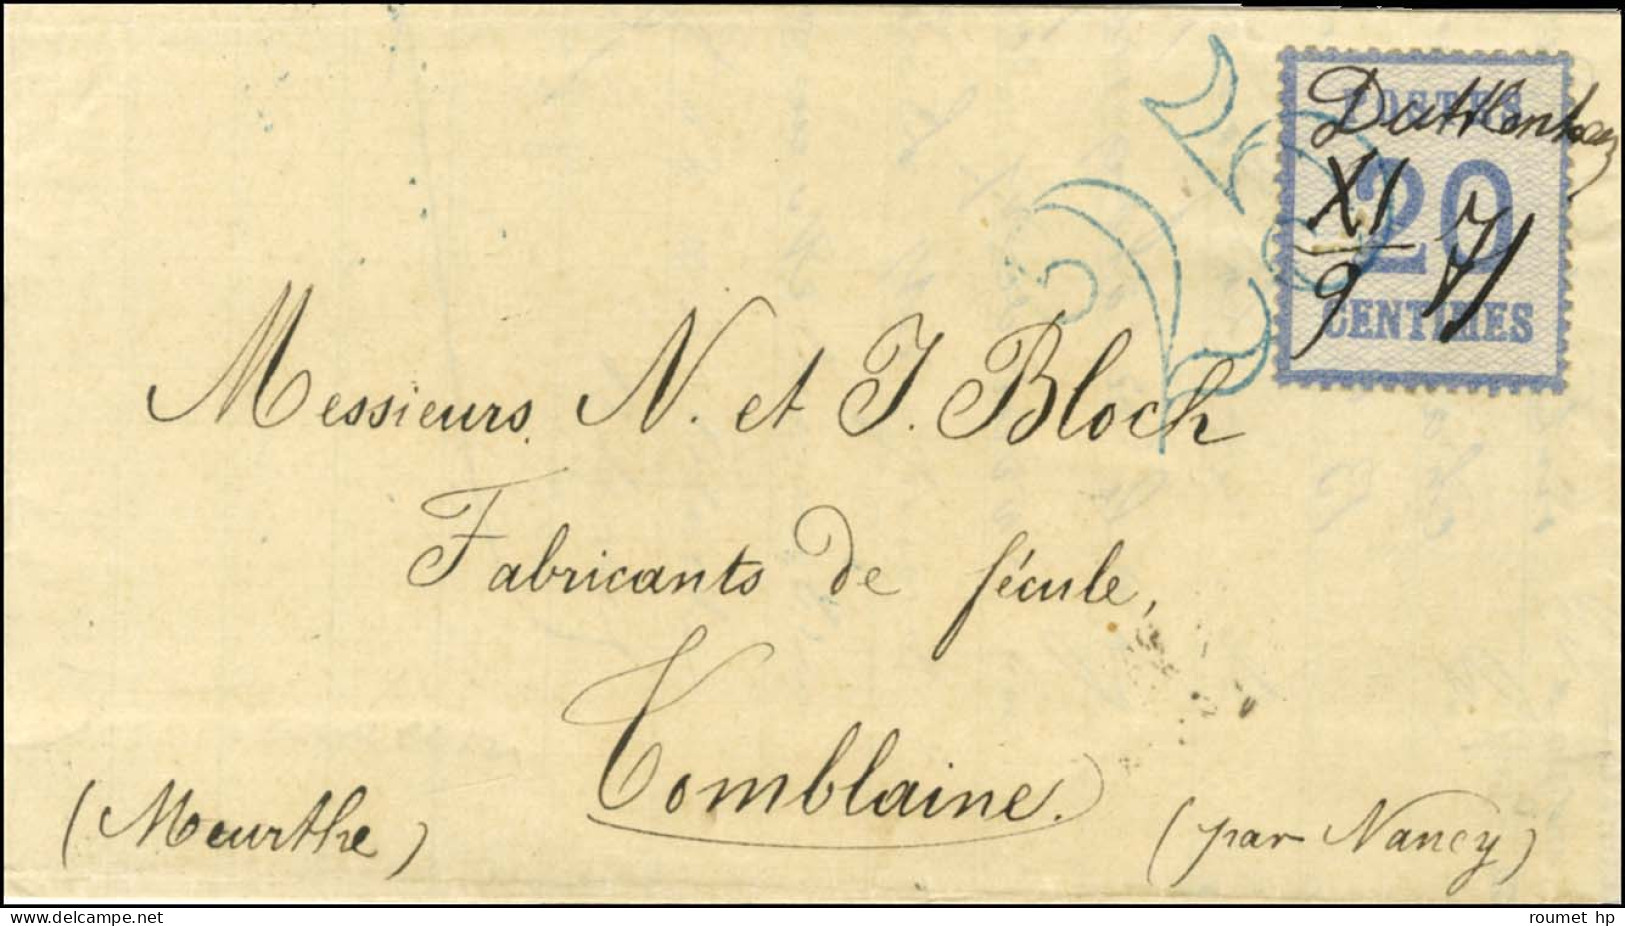 POSTES
Dattlenheim
20
XI
9
71
CENTIMES
Messieurs N. et J. Bloch
Fabricants de fécule,
Tomblaine.
(Meurthe)
(par Nancy)
roumet hp